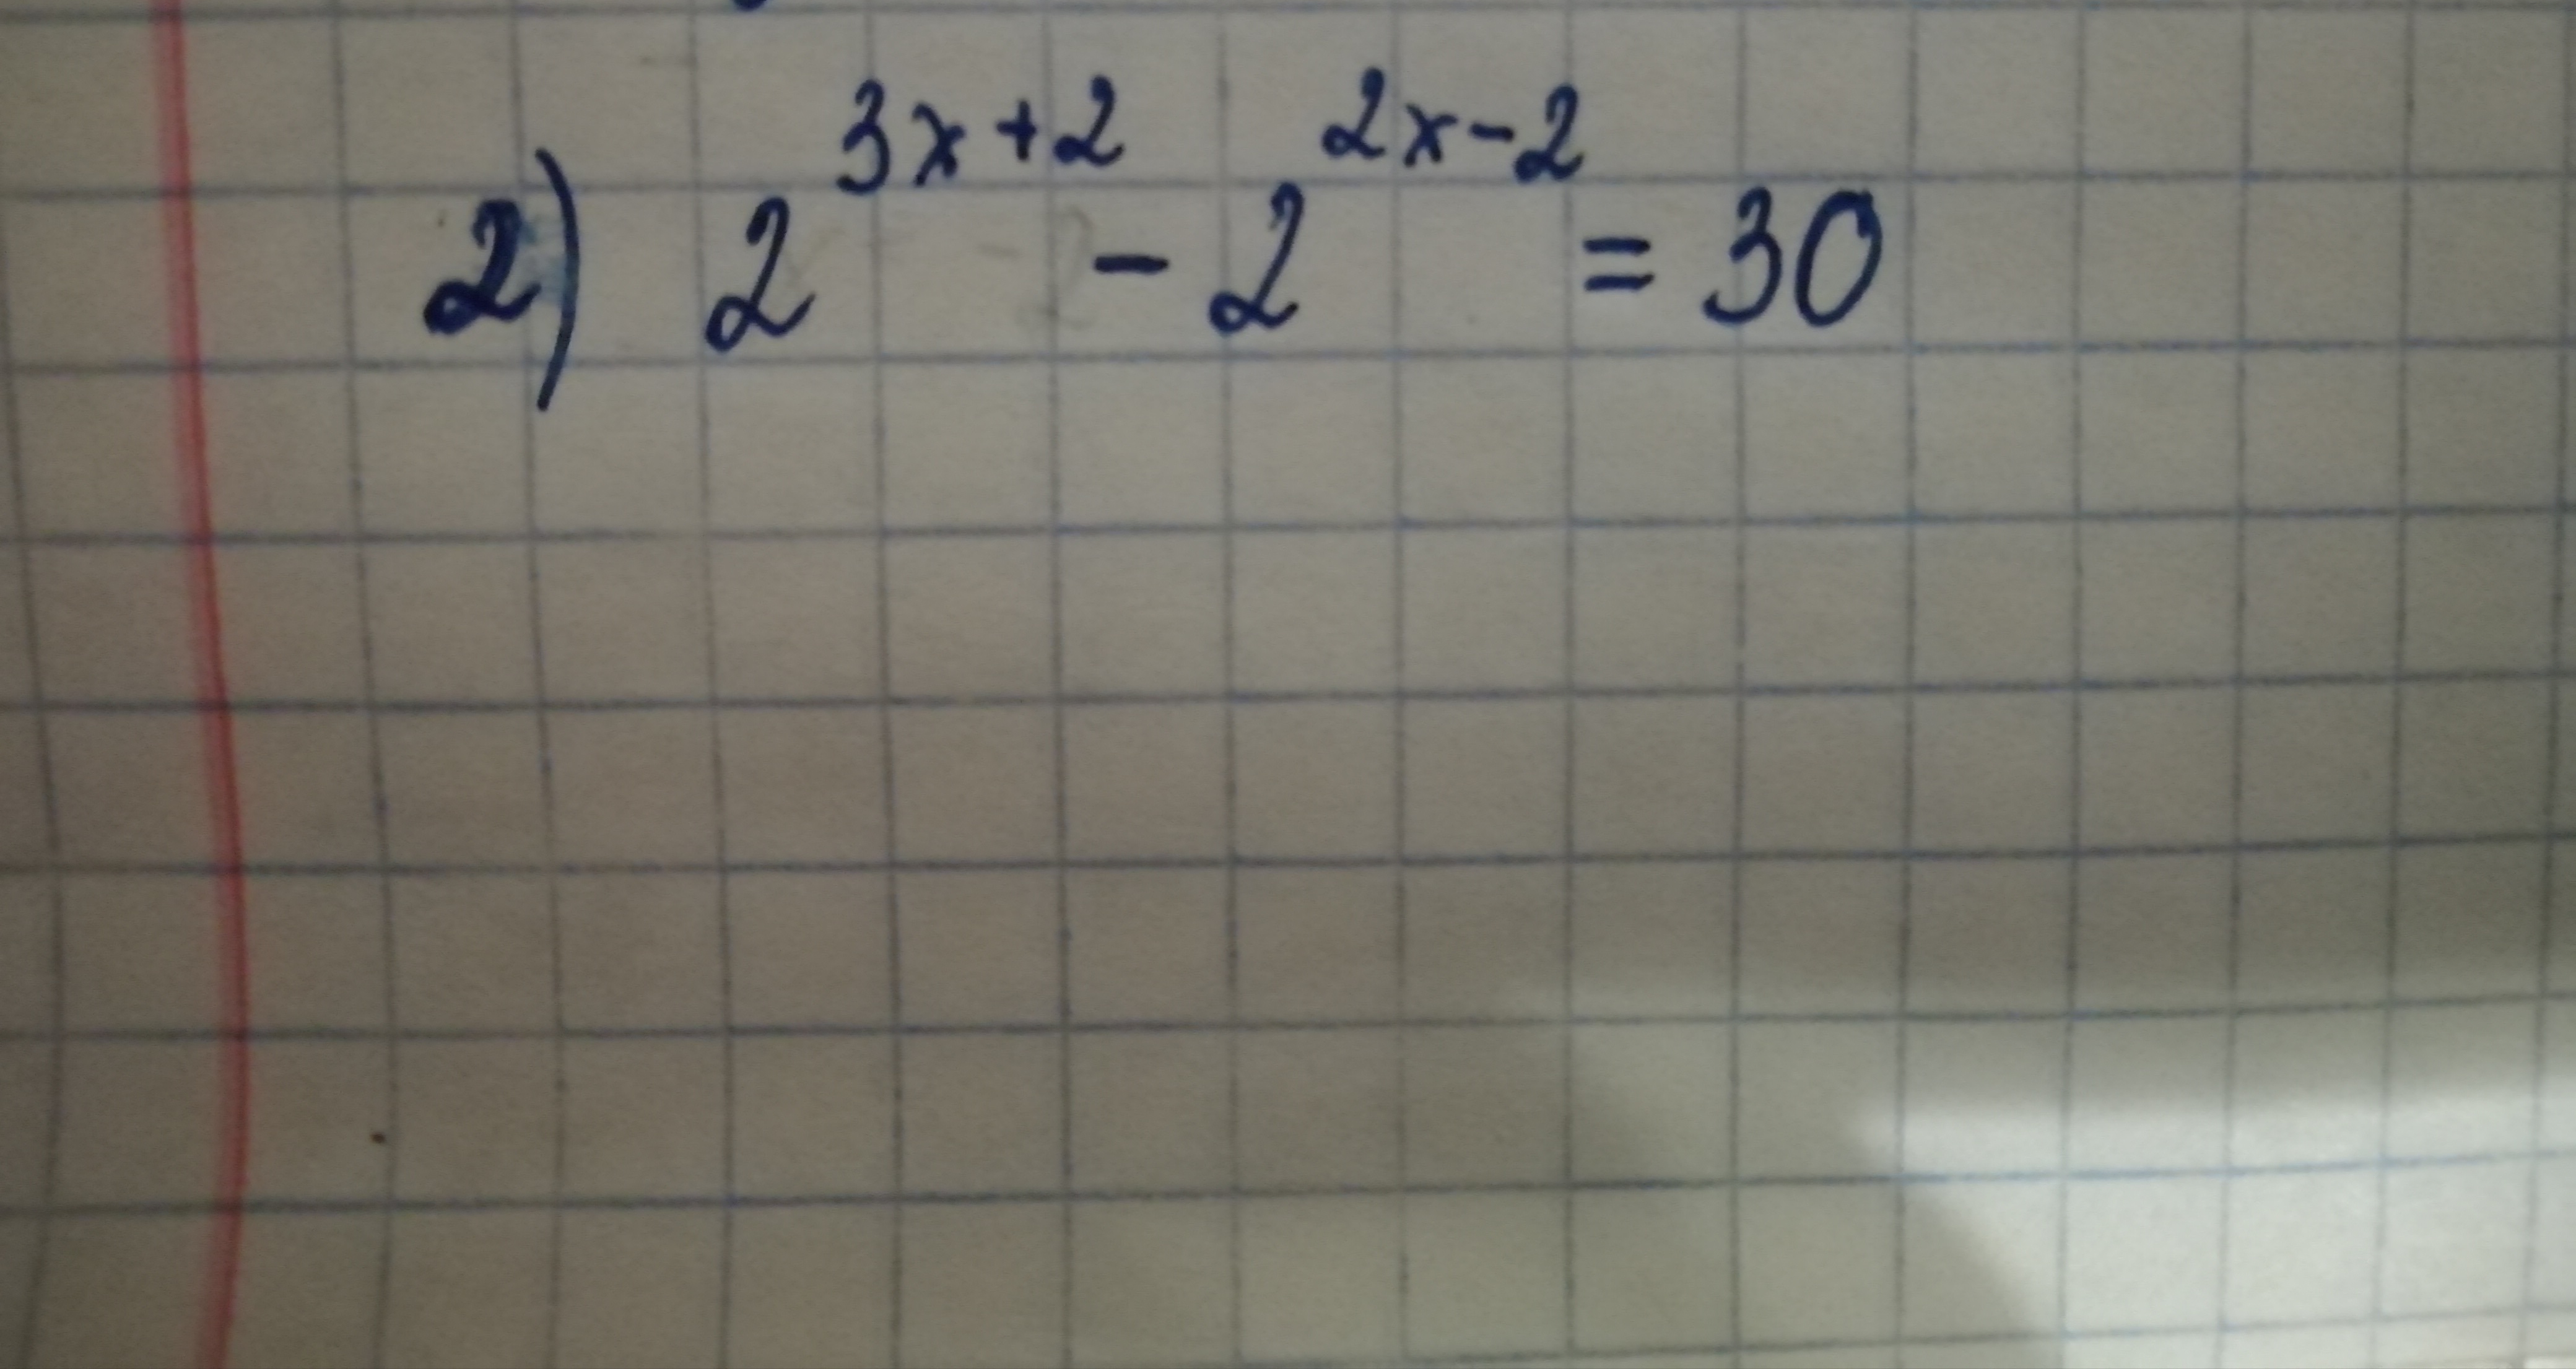 2) 2^{3x+2} - 2^{2x-2} = 30